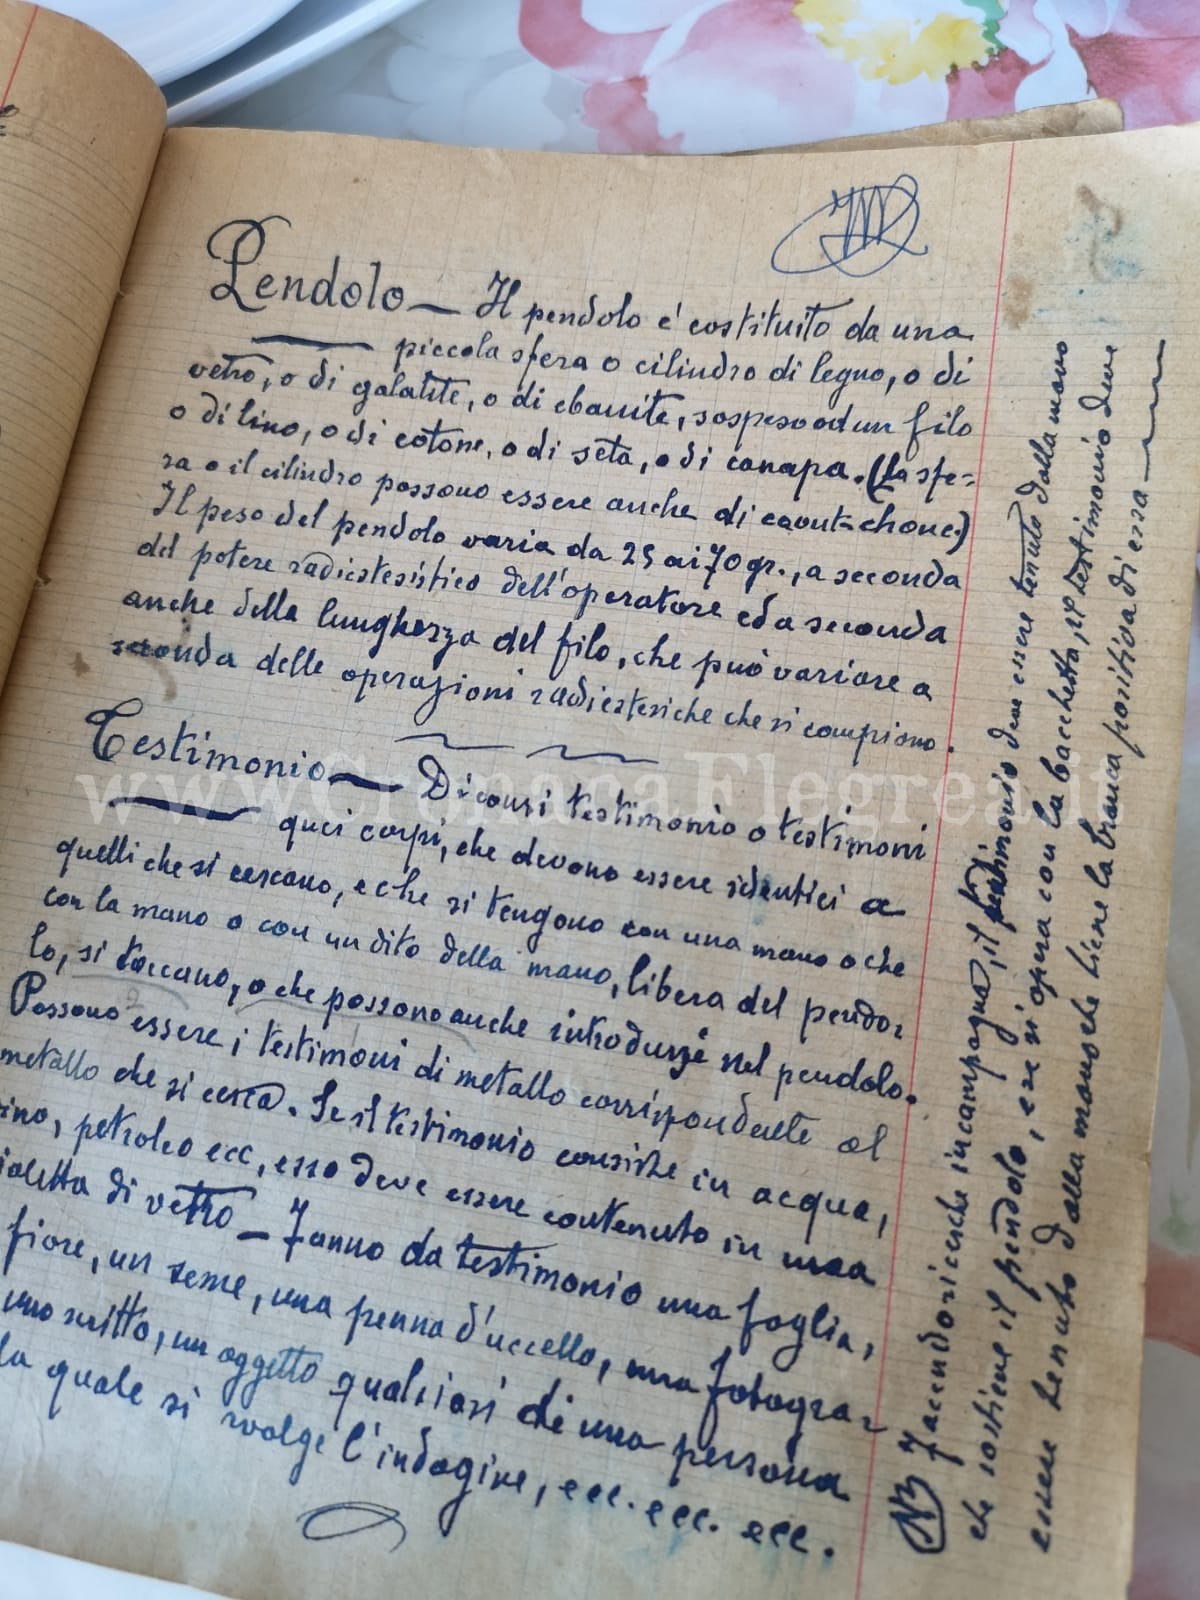 Pendolo — Il pendolo é costituito da una
piccola sfera o cilindro di legno, o di
vetro, o di galatite, o di ebanite, sospeso ad un filo
o di lino, o di cotone, o di seta, o di canapa. (La sfe=
ra o il cilindro possono essere anche di caout=chouc.)
Il peso del pendolo varia da 25 ai 70 gr., a seconda
del potere radiestesistico dell'operatore ed a seconda
anche della lunghezza del filo, che può variare a
seconda delle operazioni radiestesiche che si compiono.
Testimonio — Diconsi testimonio o testimoni
quei corpi, che devono essere identici a
quelli che si cercano, e che si tengono con una mano o che
con la mano o con un dito della mano, libera del pendo=
lo, si toccano, o che possono anche introdursi nel pendolo.
Possono essere i testimoni di metallo corrispondente al
metallo che si cerca. Se il testimonio consiste in acqua,
vino, petrolio ecc, esso deve essere contenuto in una
fialetta di vetro — Fanno da testimonio una foglia,
fiore, un seme, una penna d'uccello, una fotogra=
uno scritto, un oggetto qualsiasi di una persona
la quale si svolge l'indagine, ecc. ecc. ecc.
NB Facendo ricerche in campagna, il testimonio deve essere tenuto dalla mano
che sostiene il pendolo, e se si opera con la bacchetta, il testimonio deve
essere tenuto dalla mano che tiene la branca positiva di essa —
www.CronacaFlegrea.it